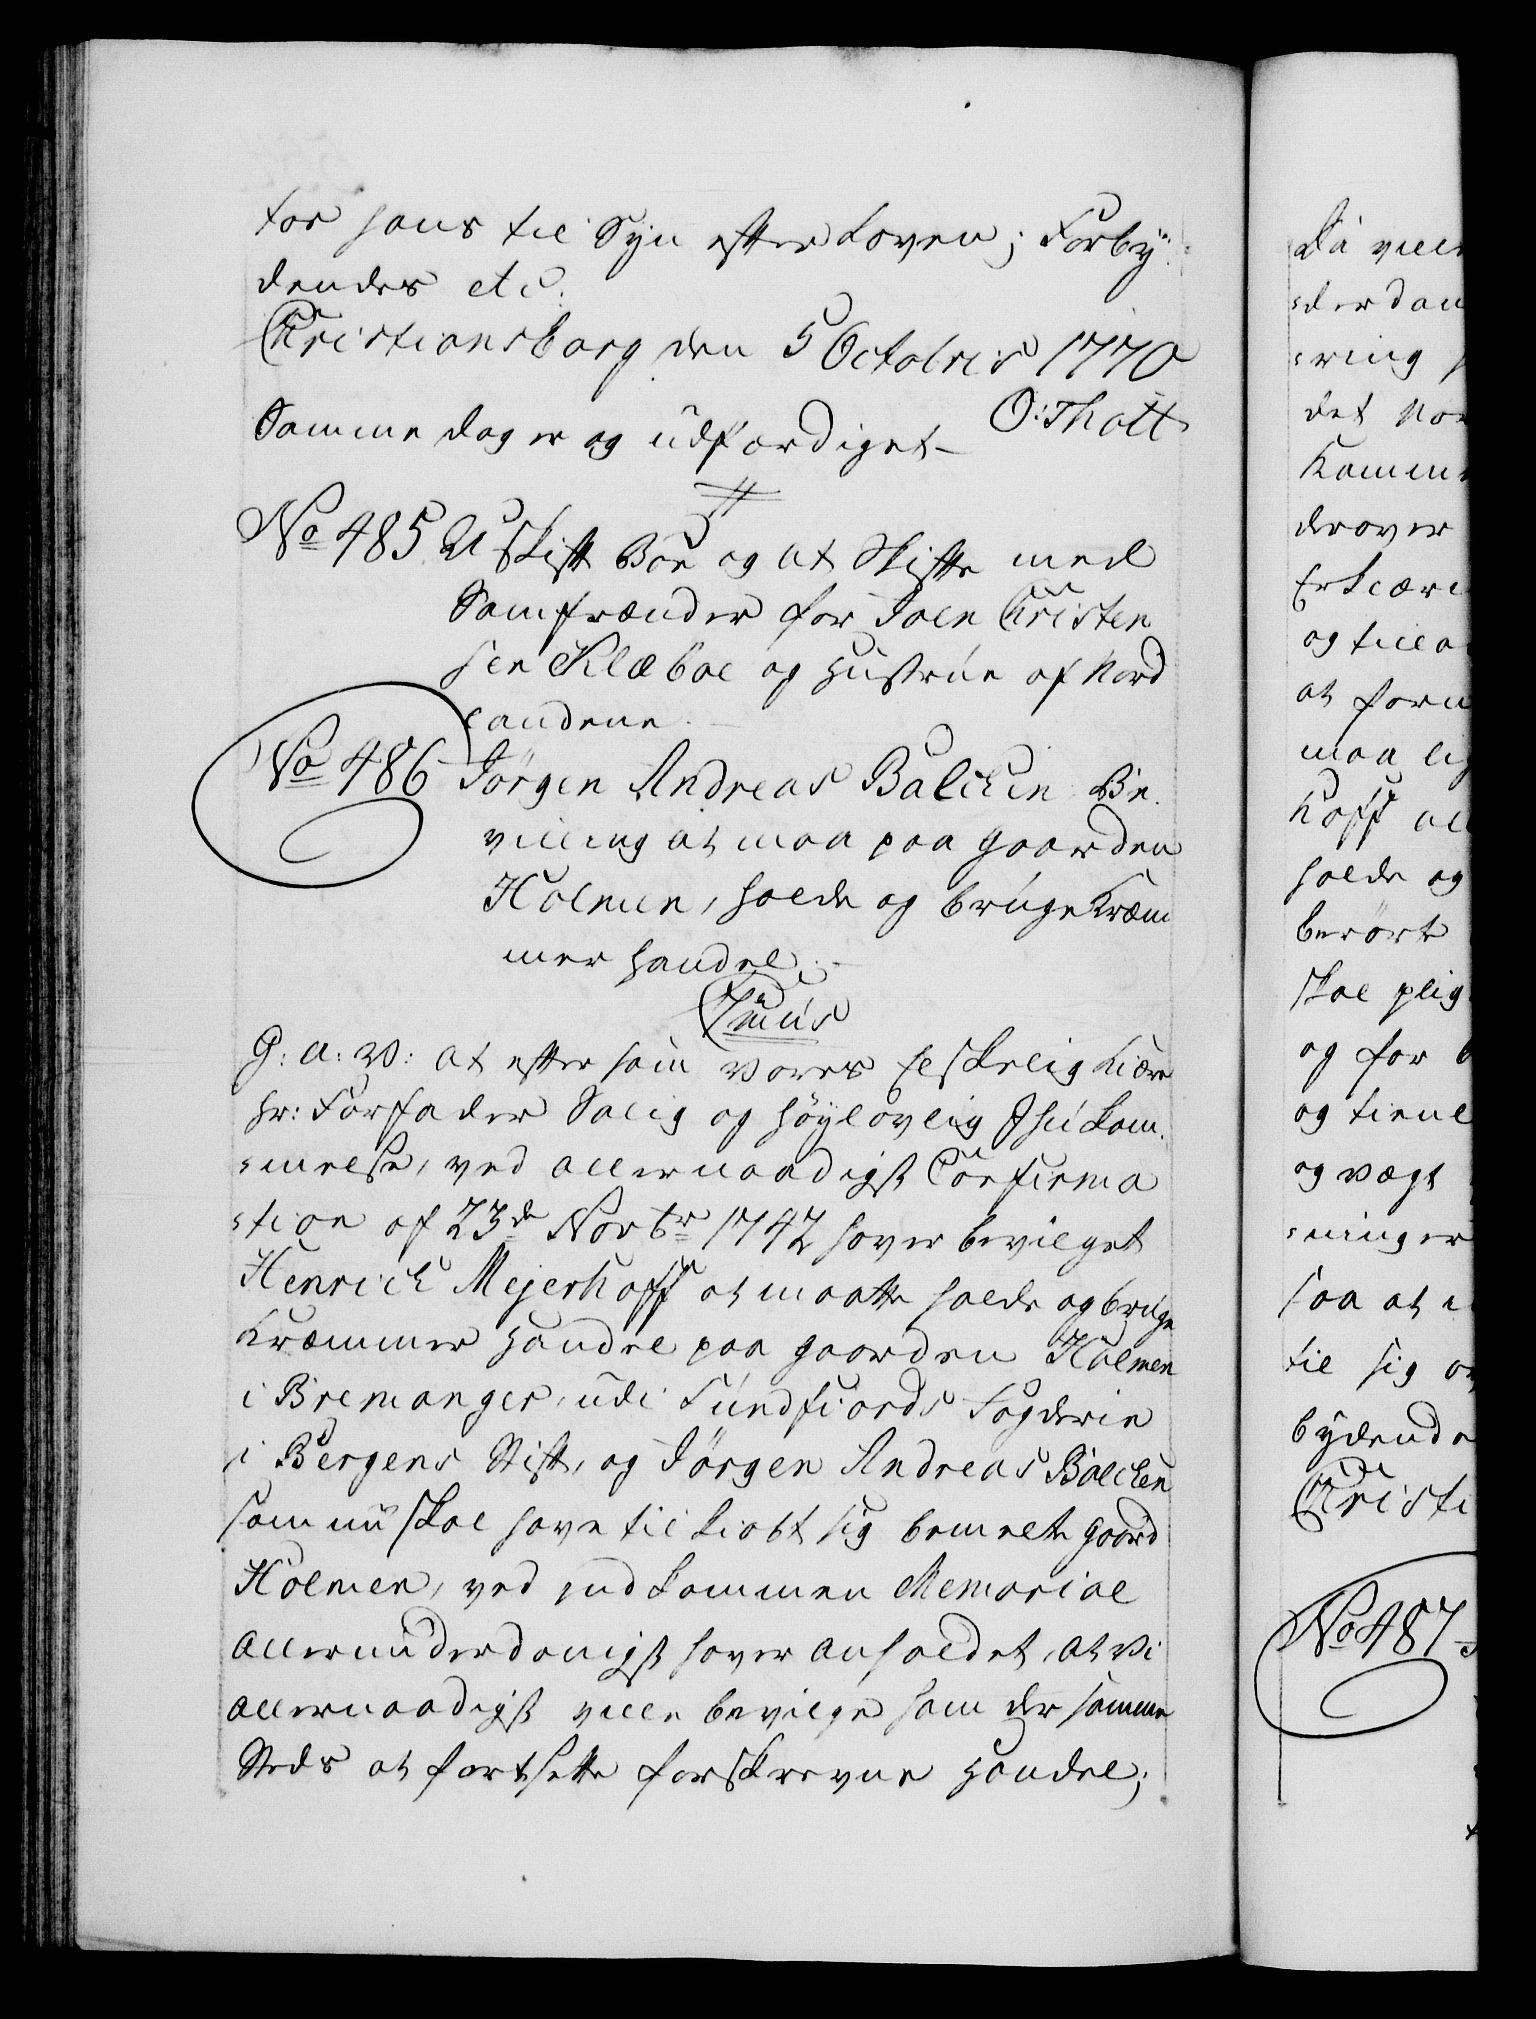 tør hans til Syn efter Loven; Forby-
dendes etc:
Christiansborg den 5 Octobris 1770
O: Thott
Samme dag er og udfærdiget
No 485 Uskift Boe og at Skifte med
Samfrænder for Joen Christen
sen Klæboe og Hustrue af Nord
landene.
No 486 Jørgen Andreas Balchen Be-
villing at maa paa Gaarden
Holmen, holde og bruge Kræm
mer Handel.
C 7mus
G: a: V: at efter som Vores Elskelig Kiære
Hr: Forfader Salig og Høylovlig Ihukom-
melse, ved allernaadigst Confirma
-tion af 23de Novbr 1742 haver bevilget
Henrich Mejerhoff at maatte holde og bruge
Kræmmer Handel paa Gaarden Holmen
i Bremanger, udi Sundfiords Fogderie
i Bergens Stift, og Jørgen Andreas Balchen
som nu skal have tilkiøbt sig bemelte Gaard
Holmen, ved indkommen Memorial
allerunderdanigst haver anholdet, at Vi
allernaadigst ville bevilge ham der samme
Steds at fortsette forskrevne Handel;
Da ville
-derdan
-ring
det No
Kamm
derover
Erklæri
og tilla
at form
maa lig
hoff all
holde og
berørt
skal plig
og for
og tienl
og Vægt
-ninger
saa at
til sig
bydende
Christi
No 487